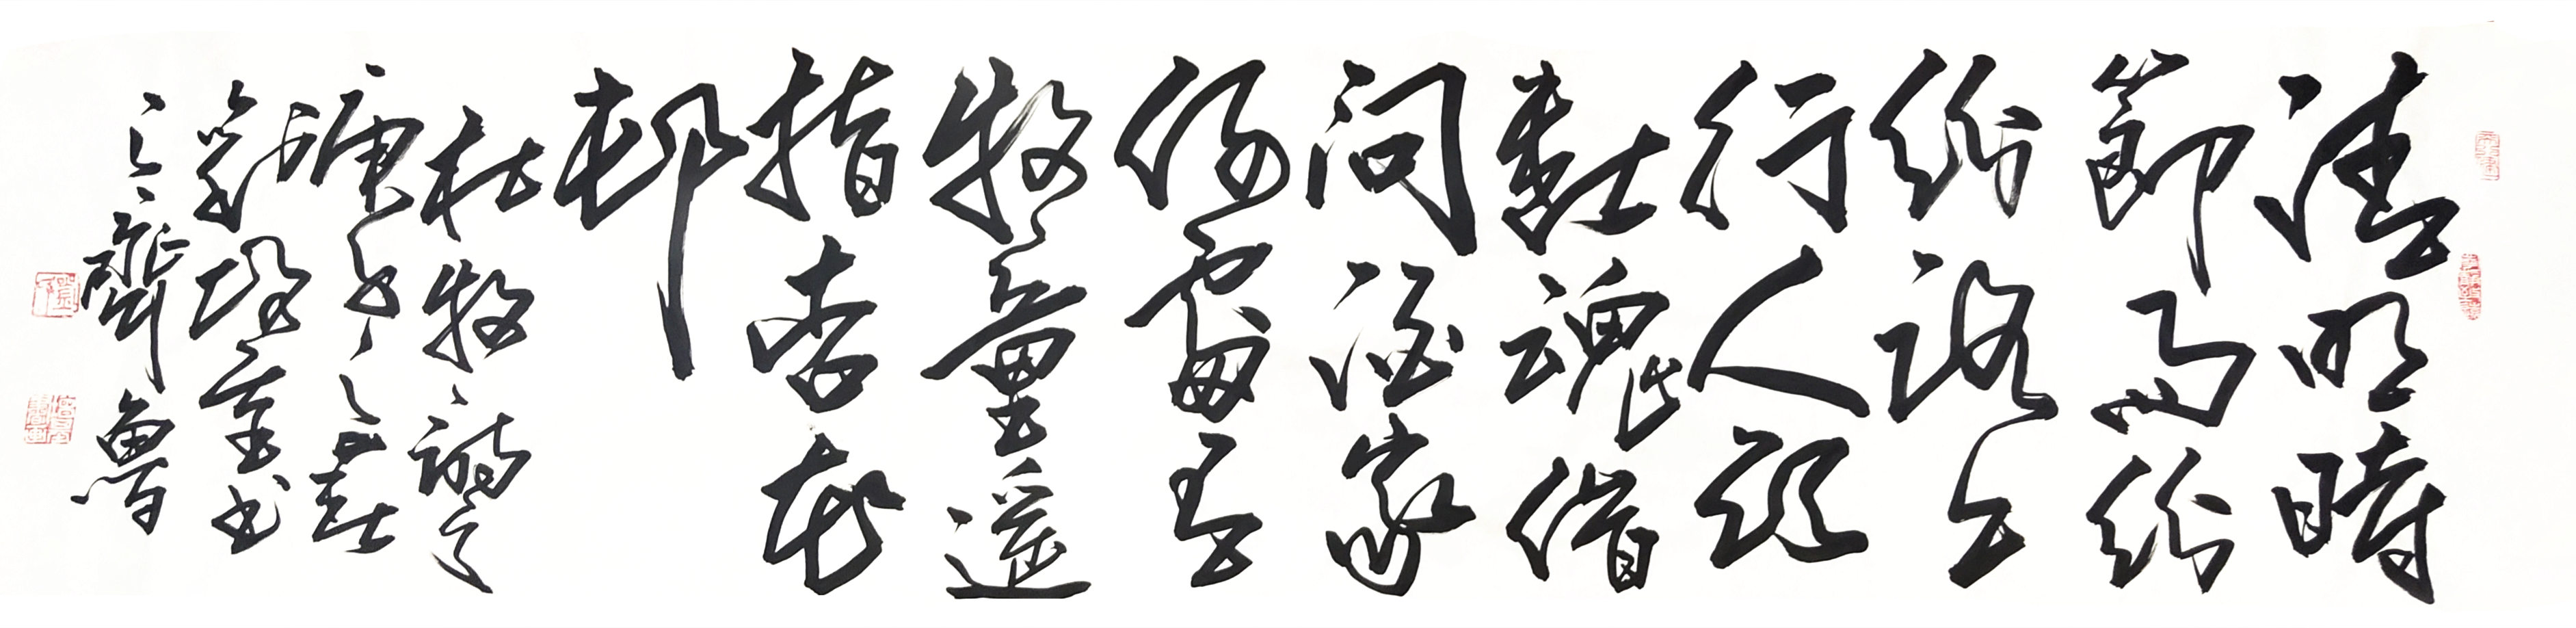 清明時
節雨紛
紛路上
行人欲
斷魂借
問酒家
何處有
牧童遥
指杏花
村
杜牧詩
庚子之春
書
齊魯